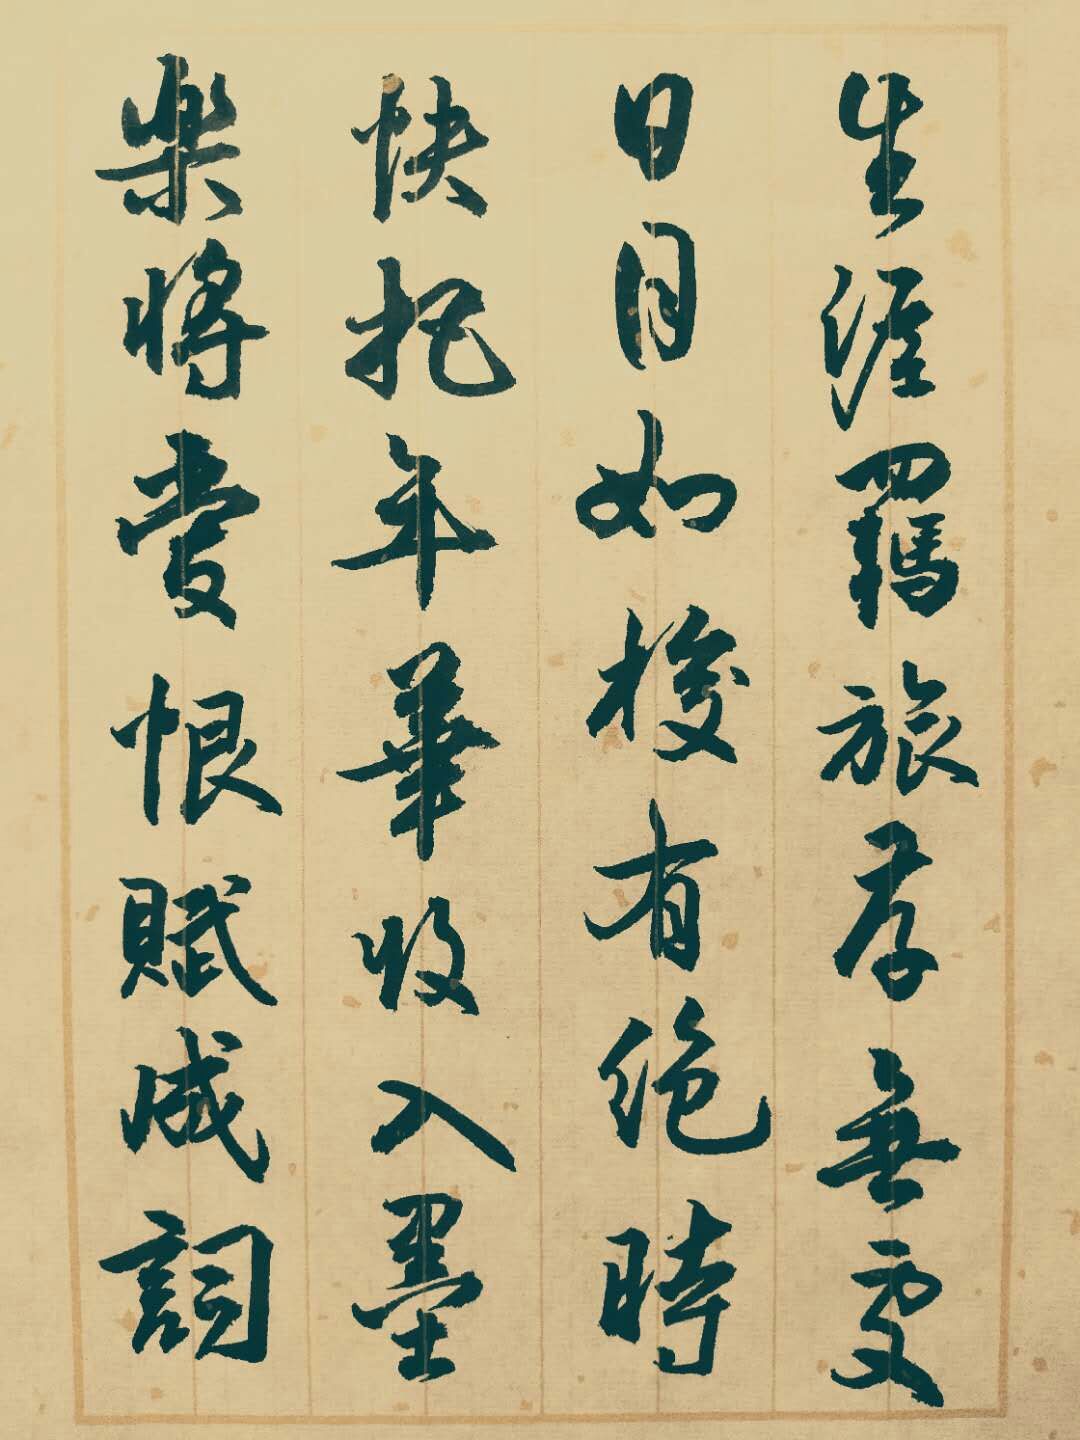 生涯羈旅存無處
日月如梭有絕時
快把年華收入墨
樂將愛恨賦成詞